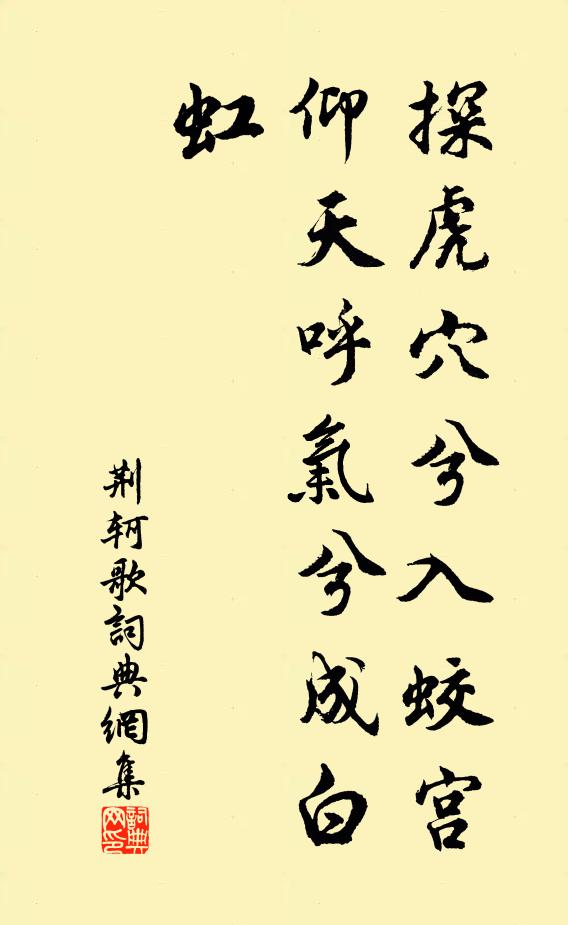 探虎穴兮入蛟宫
仰天呼氣兮成白
虹
荆軻歌詞典網集
詞典网印